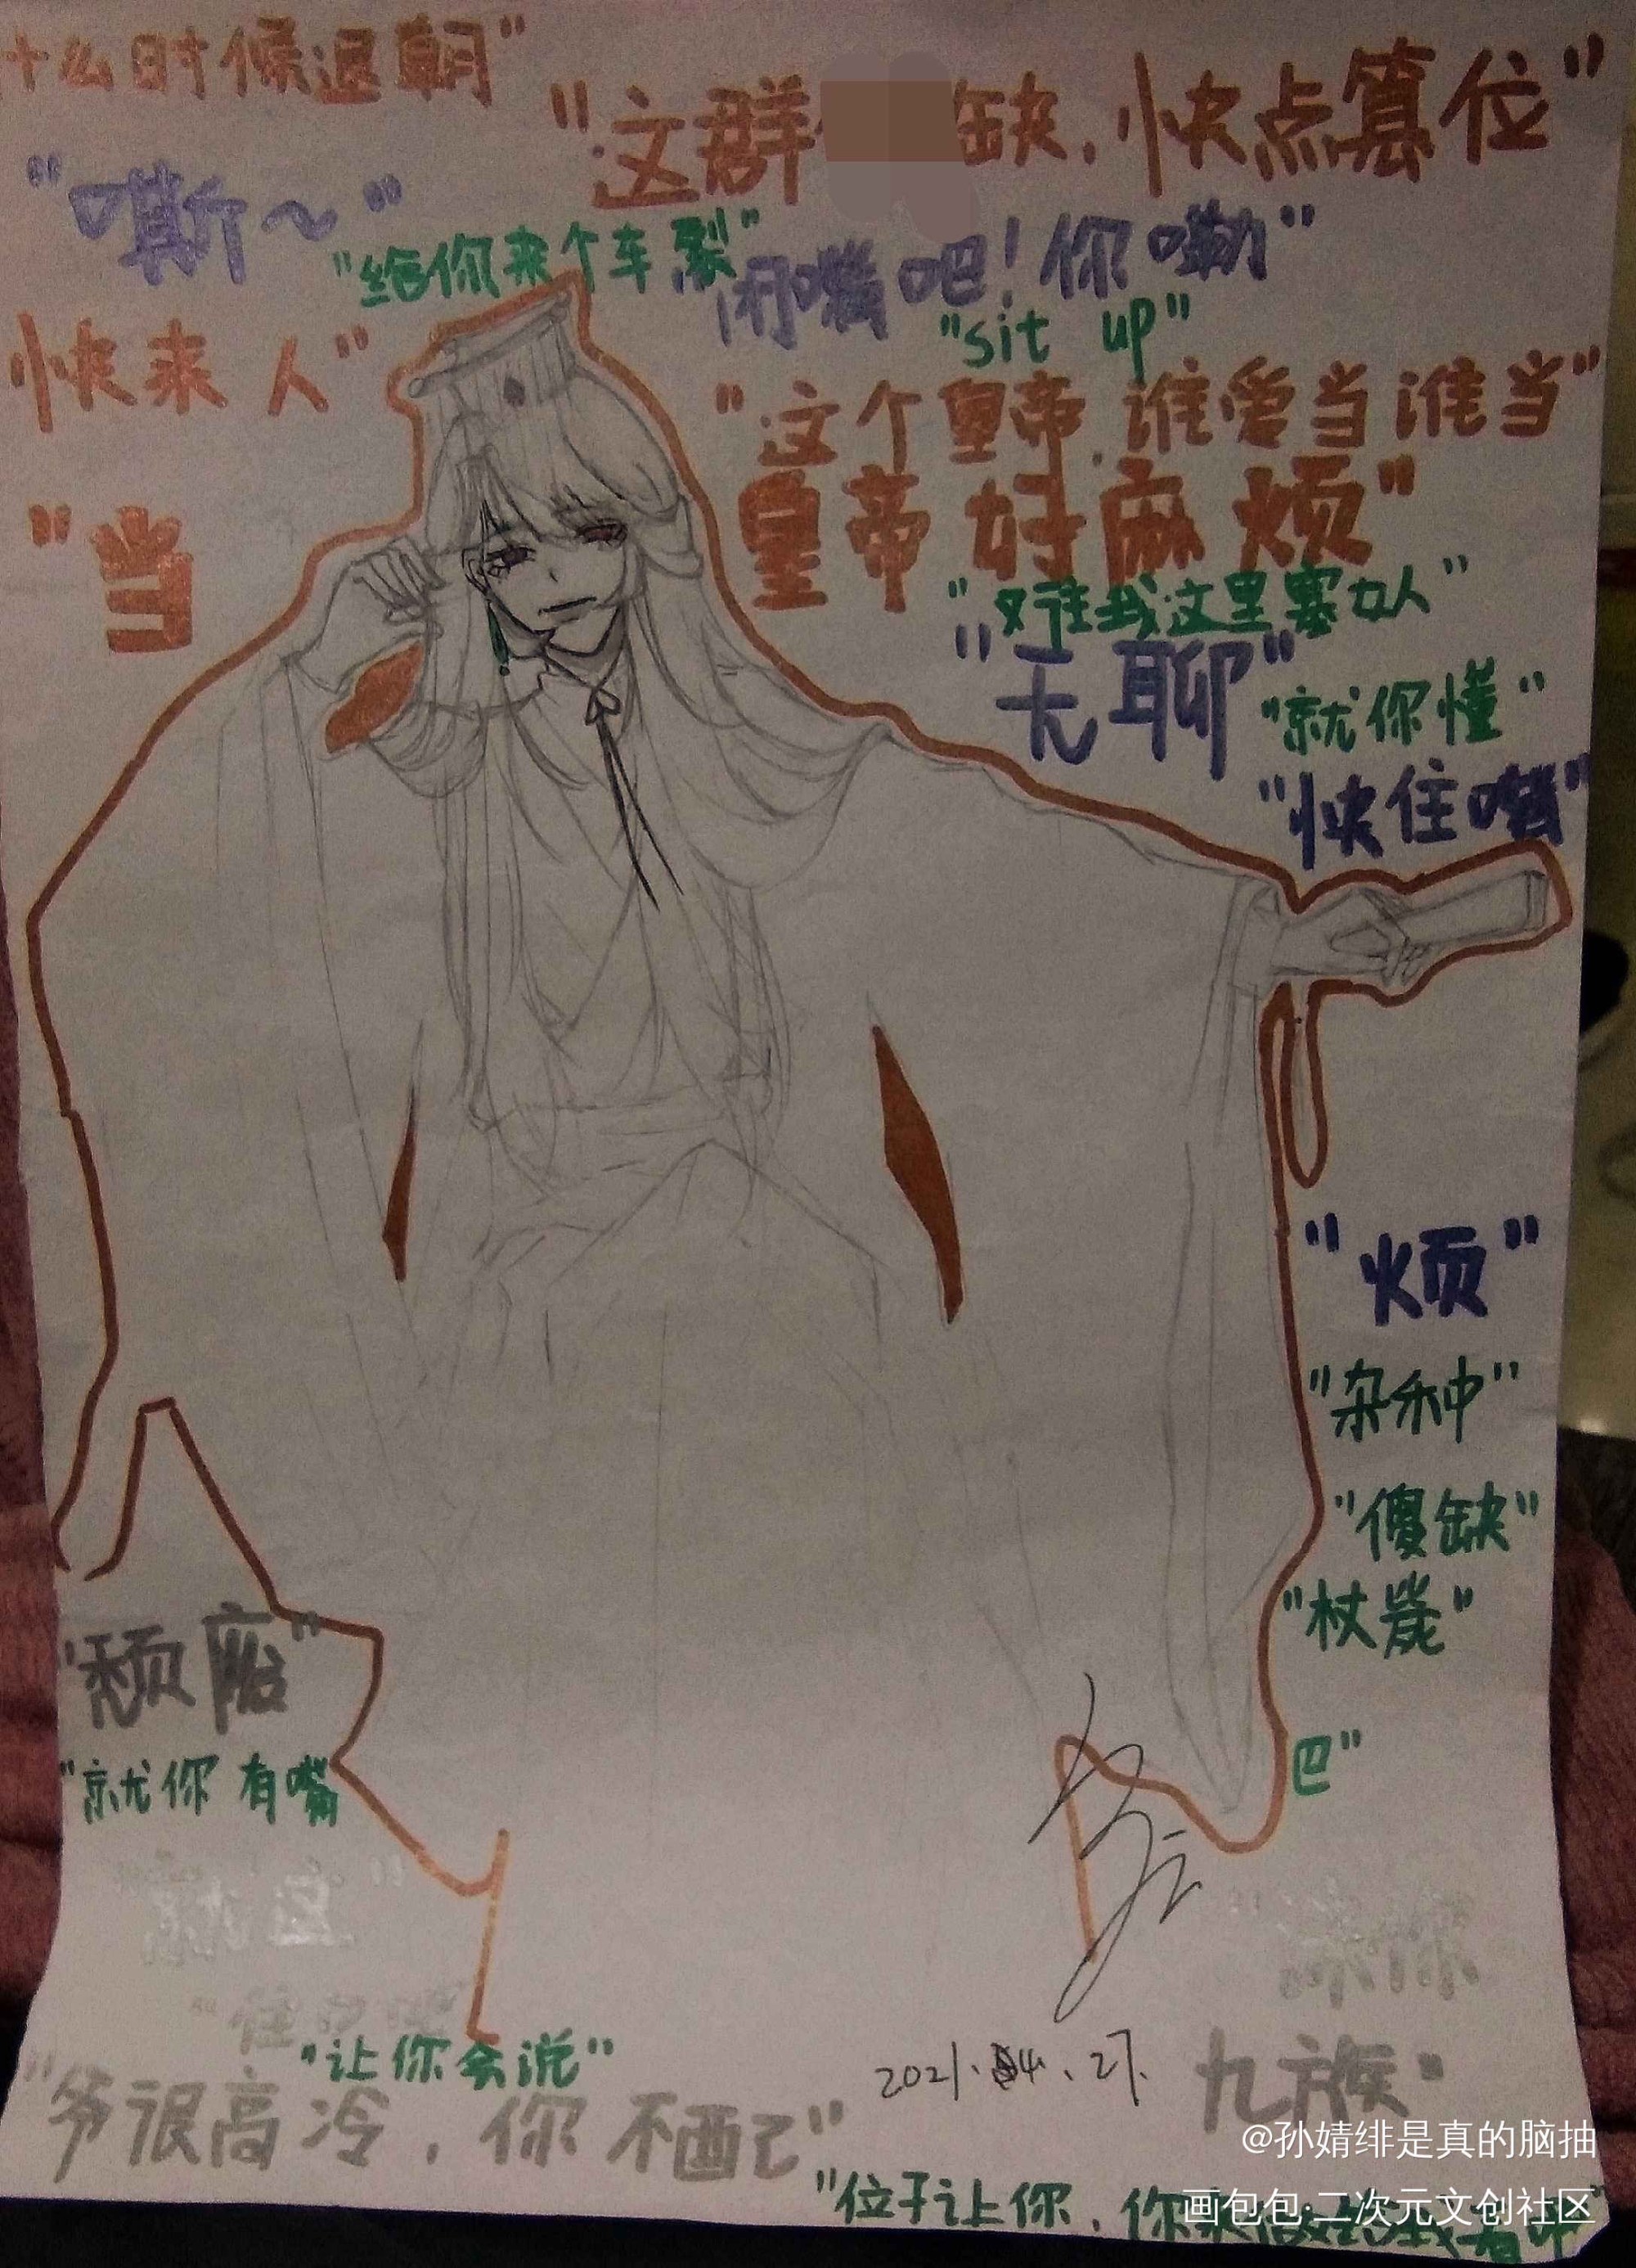 什么时候退朝"
"这群 缺，快点篡位"
"嘶～"
"给你来个车裂"
闭嘴吧！你嘞"
"sit up"
快来人"
"这个皇帝，谁爱当谁当"
"当
皇帝好麻烦"
"又往我这里塞女人"
"无聊"
"就你懂"
"快住嘴"
"烦"
"杂种"
"傻缺"
"杖毙"
"颓废"
巴"
"就你有嘴
"让你会说"
2021.04.27.
九族"
"爷很高冷，你不配"
@孙婧绯是真的脑抽
"位子让你，你来
画包包·二次元文创社区